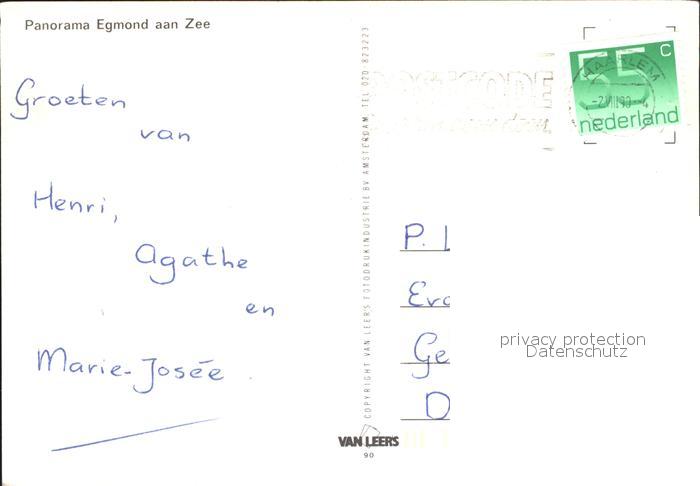 Panorama Egmond aan Zee
Groeten
van
Henri,
Agathe
en
Marie-Josée
COPYRIGHT VAN LEER'S FOTODRUKINDUSTRIE BV AMSTERDAM, TEL. 020-823223
VAN LEER'S
90
POSTCODE
HAARLEM
-2.VIII.90--4
55 c
nederland
P.
Ge
D
privacy protection
Datenschutz